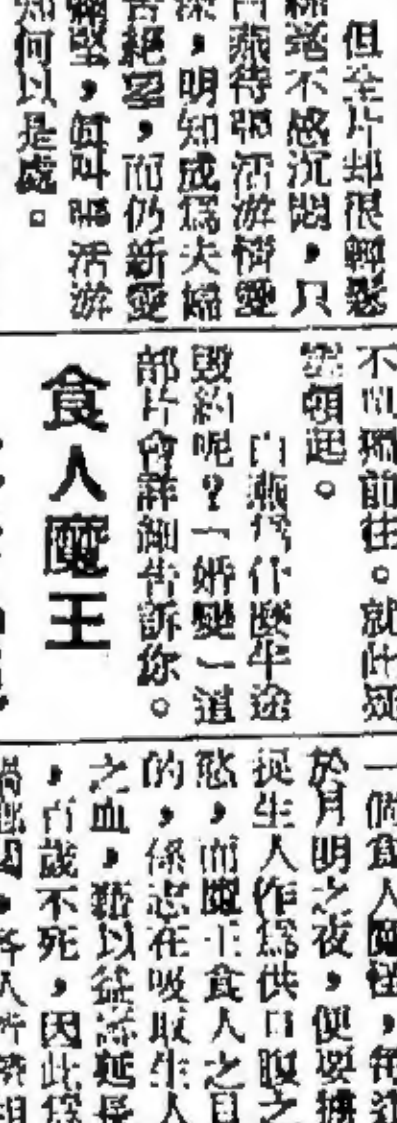 但全片却很輕鬆
絲毫不感沉悶，只
白燕待張活游情愛
深，明知成爲夫婦
絕望，而仍新愛
彌堅，何叫張活游
如何以是處。
前往。就此疑
頓起。
白燕爲什麼半途
毀約呢？「婚變」這
部片會詳細告訴你。
食人魔王
一個食人魔怪，每
於月明之夜，便要擄
捉生人作爲供口腹之
慾，而魔王食人之目
的，係志在吸取生人
之血，藉以益壽延長
，百歲不死，因此爲